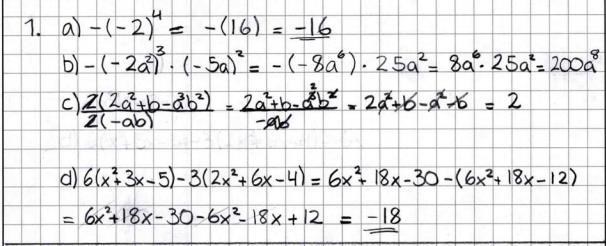 1. a) -(-2)⁴ = -(16) = -16
b) -(-2a²)³ · (-5a)² = -(-8a⁶) · 25a² = 8a⁶ · 25a² = 200a⁸
c) 2(2a²+b-a³b²)/2(-ab) = 2a²+b-a³b²/-ab = 2a²+b-a²-b = 2
d) 6(x²+3x-5)-3(2x²+6x-4) = 6x²+18x-30-(6x²+18x-12)
= 6x²+18x-30-6x²-18x+12 = -18